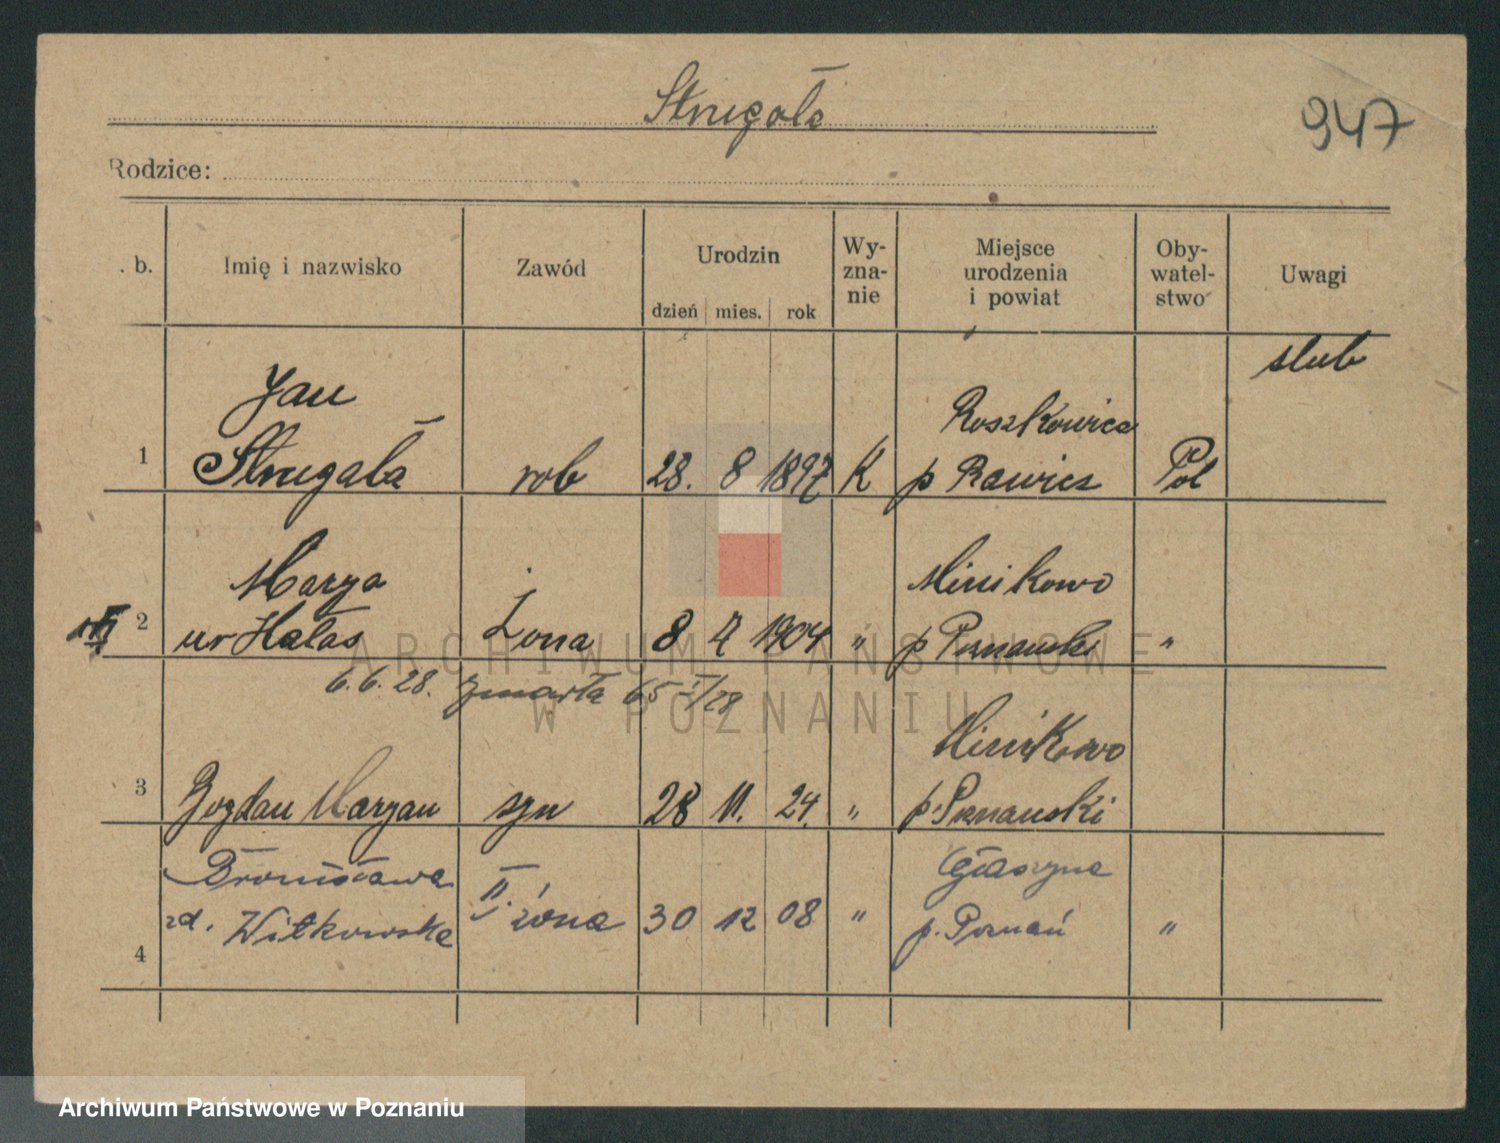 Strugała
947
Rodzice:
. b. Imię i nazwisko Zawód Urodzin dzień mies. rok Wy-zna-nie Miejsce urodzenia i powiat Oby-watel-stwo Uwagi
slub
Jan Roszkowice
1 Strugała rob 28. 8 1897 K p Rawicz Pol
Marya Minikowo
2 ur Hałas Żona 8 7 1904 " p Poznański "
6.6.28. zmarła
Minikowo
3 Bogdan Maryan syn 28 11. 24. " p. Poznański
Bronisława Głuszyna
zd. Witkowska II. żona 30 12 08 " p. Poznań "
4
ARCHIWUM PAŃSTWOWE
W POZNANIU
Archiwum Państwowe w Poznaniu